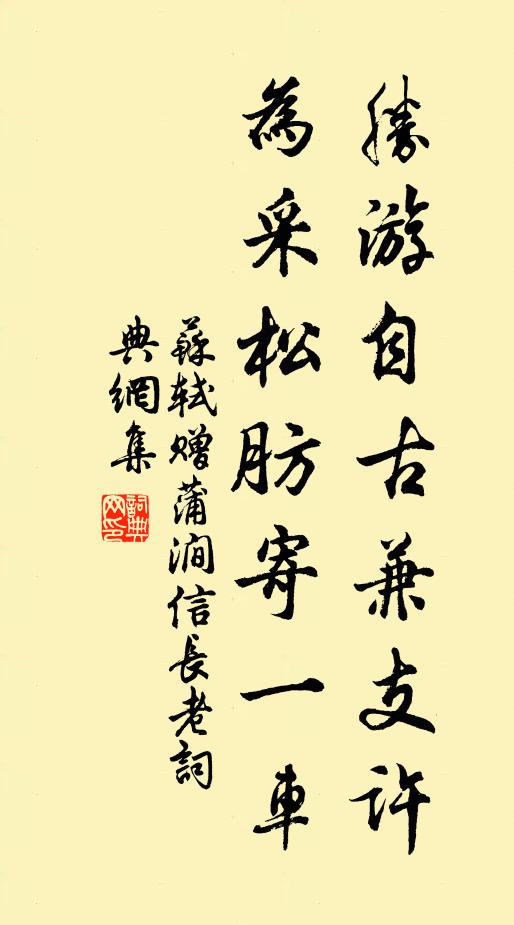 勝游自古兼支許
為采松肪寄一車
蘇軾贈蒲澗信長老詞
典網集
詞典網印